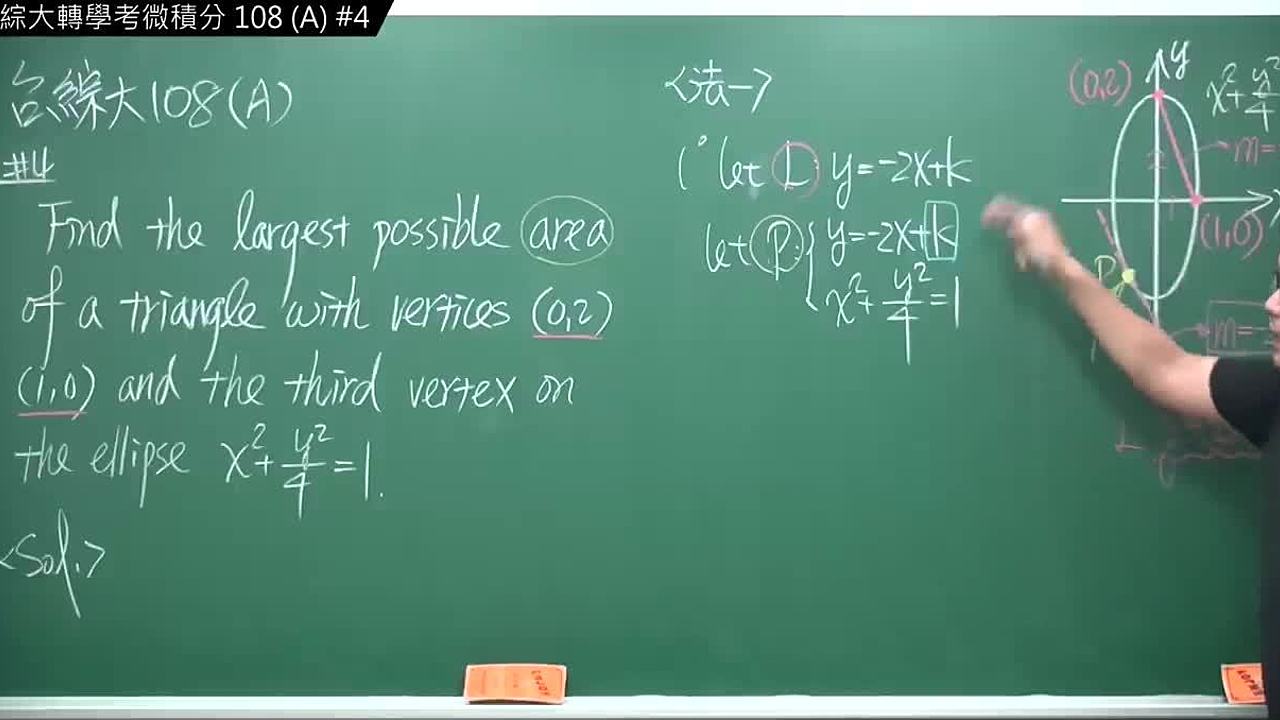 綜大轉學考微積分 108 (A) #4
台綜大108(A)
#4
Find the largest possible area
of a triangle with vertices (0,2)
(1,0) and the third vertex on
the ellipse x²+y²/4=1.
<Sol.>
<法一>
1° let L y=-2x+k
let P: { y=-2x+k
x²+y²/4=1
(0,2)
y
x²+y²/4
m=
(1,0)
P
m=
L